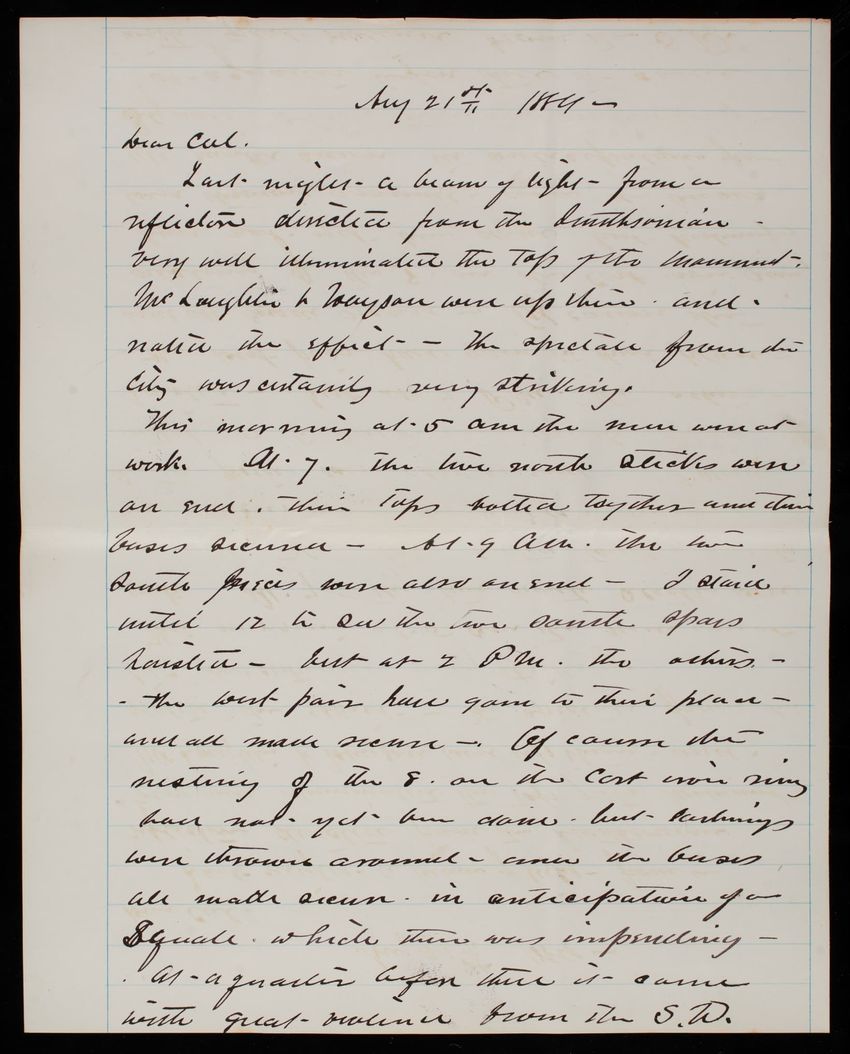 Aug 21st 1884 -
Dear Col.
Last night - a beam of light - from a
reflector directed from the Smithsonian -
very well illuminated the top of the Monument.
McLaughlin & Wayson were up there. and.
noted the effect - - the spectacle from the
City was certainly very striking.
This morning at 5 am the men were at
work. At 7. the two north sticks were
on end. their tops bolted together and their
bases secured - At 9 am. the two
south pieces were also on end - I staid
until 12 to see the two south spars
hoisted - but at 2 PM. the others. -
- the west pair have gone to their place -
and all made secure -. Of course the
nesting of the 8. on the cast iron ring
has not - yet been done. but - lashings
were thrown around - and the bases
all made secure. in anticipation of a
Squall. which there was impending -
. At - a quarter before three it came
with great - violence from the S.W.